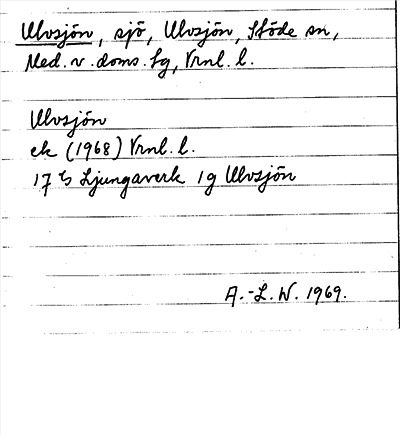 Ulvsjön, sjö, Ulvsjön, Stöde sn,
Med. v. doms. fg, Vrnl. l.
Ulvsjön
ek (1968) Vrnl. l.
17 G Ljungaverk 1g Ulvsjön
A.-L. W. 1969.